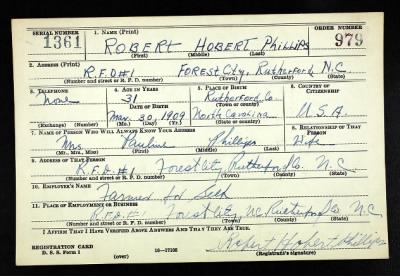 SERIAL NUMBER 1. NAME (Print) ORDER NUMBER
1361 ROBERT HOBERT PHILLIPS 979
(First) (Middle) (Last)
2. ADDRESS (Print)
R.F.D #1 FOREST City, Rutherford N.C.
(Number and street or R. F. D. number) (Town) (County) (State)
3. TELEPHONE 4. AGE IN YEARS 5. PLACE OF BIRTH 6. COUNTRY OF CITIZENSHIP
None 31 Rutherford Co.
DATE OF BIRTH (Town or county)
Mar. 30, 1909 North Carolina U.S.A.
(Exchange) (Number) (Mo.) (Day) (Yr.) (State or country)
7. NAME OF PERSON WHO WILL ALWAYS KNOW YOUR ADDRESS 8. RELATIONSHIP OF THAT PERSON
Mrs. Pauline Phillips Wife
(Mr., Mrs., Miss) (First) (Middle) (Last)
9. ADDRESS OF THAT PERSON
R.F.D. #1 Forest City Rutherford Co. N.C.
(Number and street or R. F. D. number) (Town) (County) (State)
10. EMPLOYER'S NAME
Farmer for Self
11. PLACE OF EMPLOYMENT OR BUSINESS
R.F.D. Forest City, N.C. Rutherford Co. N.C.
(Number and street or R. F. D. number) (Town) (County) (State)
I AFFIRM THAT I HAVE VERIFIED ABOVE ANSWERS AND THAT THEY ARE TRUE.
Robert Hobert Phillips
REGISTRATION CARD
D. S. S. Form 1 (over) 16—17105 (Registrant's signature)